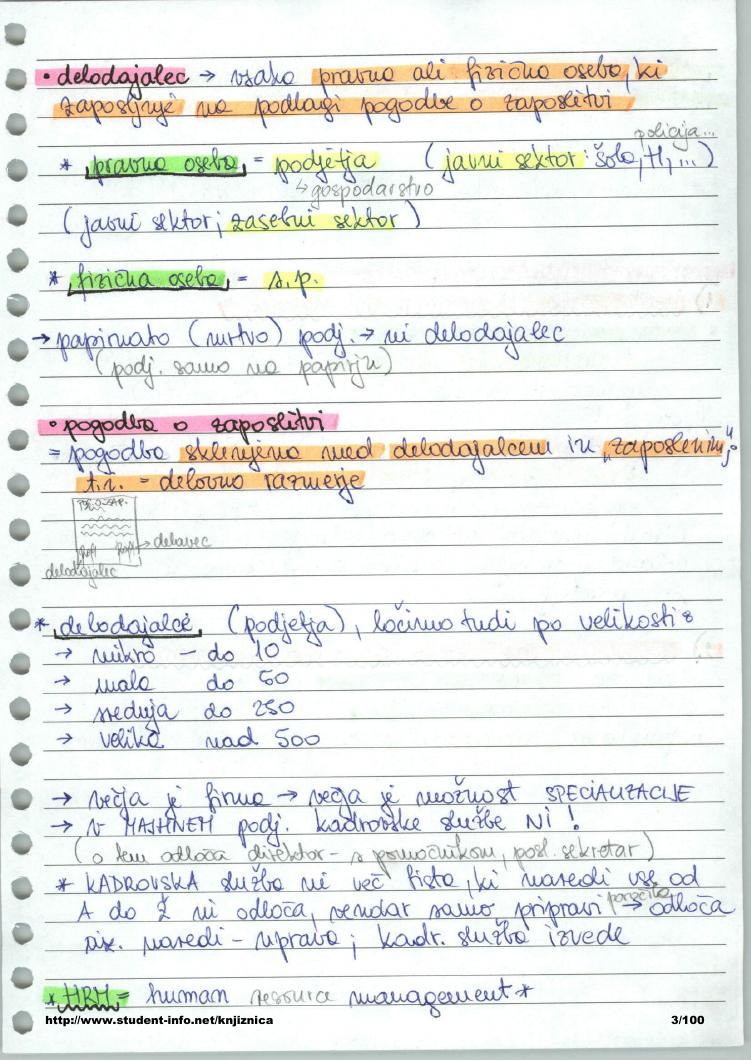 • delodajalec → vsaka pravna ali fizična oseba, ki
zaposljuje na podlagi pogodbe o zaposlitvi
policija...
* pravna oseba = podjetja (javni sektor: šola, H, ...)
↳ gospodarstvo
(javni sektor; zasebni sektor)
* fizična oseba = s.p.
→ papirnato (mrtvo) podj. → ni delodajalec
(podj. samo na papirju)
• pogodba o zaposlitvi
= pogodba sklenjena med delodajalcem in „zaposlenim";
t.i. = delovno razmerje
→ delavec
delodajalec
* delodajalce (podjetja), ločimo tudi po velikosti:
→ mikro – do 10
→ mala do 50
→ srednja do 250
→ velika nad 500
→ večja je firma → večja je možnost SPECIALIZACIJE
→ v MAJHNEM podj. kadrovske službe NI!
(o tem odloča direktor – s pomočnikom, posl. sekretar)
* KADROVSKA služba ni več tista, ki naredi vse od
A do Ž ni odloča, vendar samo pripravi → odloča
naredi – uprava; kadr. služba izvede
* HRM = human resource management *
http://www.student-info.net/knjiznica 3/100